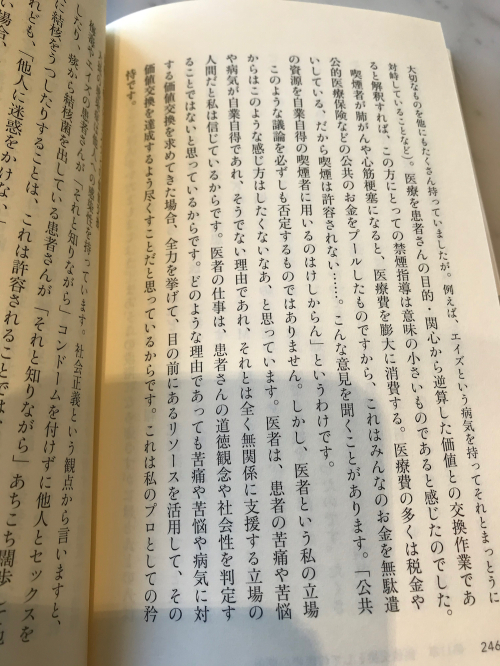 大切なものを他にもたくさん持っていましたが。例えば、エイズという病気を持ってそれとまっとうに
対峙していることなど)。医療を患者さんの目的・関心から逆算した価値との交換作業であ
ると解釈すれば、この方にとっての禁煙指導は意味の小さいものであると感じたのでした。
喫煙者が肺がんや心筋梗塞になると、医療費を膨大に消費する。医療費の多くは税金や
公的医療保険などの公共のお金をプールしたものですから、これはみんなのお金を無駄遣
いしている、だから喫煙は許容されない……。こんな意見を聞くことがあります。「公共
の資源を自業自得の喫煙者に用いるのはけしからん」というわけです。
このような議論を必ずしも否定するものではありません。しかし、医者という私の立場
からはこのような感じ方はしたくないなあ、と思っています。医者は、患者の苦痛や苦悩
や病気が自業自得であれ、そうでない理由であれ、それとは全く無関係に支援する立場の
人間だと私は信じているからです。医者の仕事は、患者さんの道徳観念や社会性を判定す
ることではないと思っているからです。どのような理由であっても苦痛や苦悩や病気に対
する価値交換を求めてきた場合、全力を挙げて、目の前にあるリソースを活用して、その
価値交換を達成するよう尽くすことだと思っているからです。これは私のプロとしての矜
持です。
246
性を持っています。社会正義という観点から言いますと、
エイズの患者さんが「それと知りながら」コンドームを付けずに他人とセックスを
したり、痰から結核菌を出している患者さんが「それと知りながら」あちこち闊歩
結核をうつしたりすることは、これは許容されることでは
けれども、「他人に迷惑をかけな
い場合、